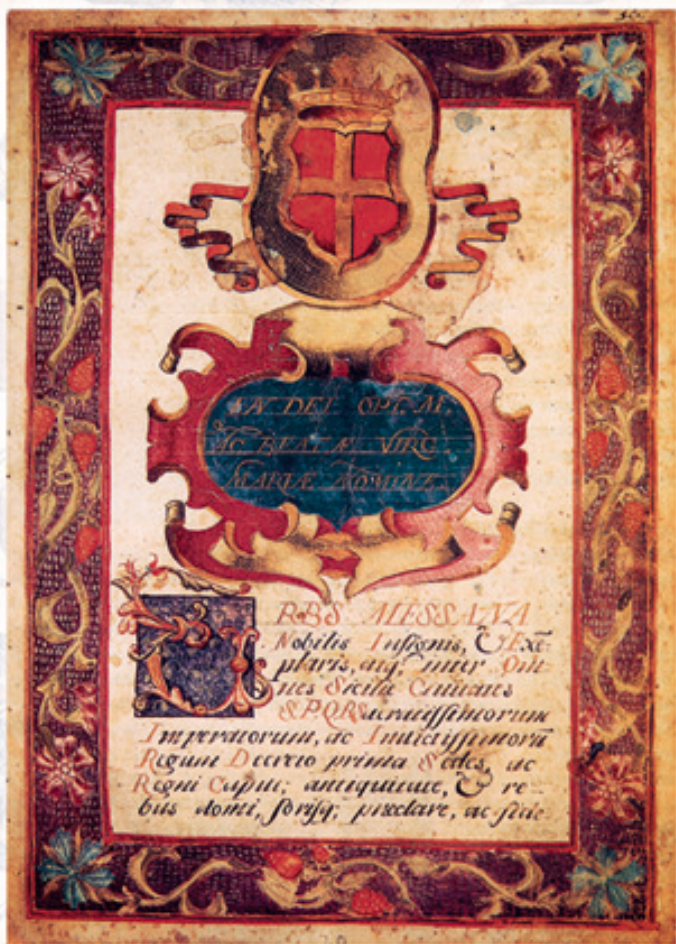 IN DEI OPT. M.
AC BEATÆ VIRG.
MARIÆ NOMINE.
URBS MESSANA
Nobilis Insignis, & Exē
plaris, atq; inter Om
nes Siciliæ Ciuitates
S.P.Q.R. Sacratissimorum
Imperatorum, ac Inuictissimorū
Regum Decreto prima Sedes, ac
Regni Caput; antiquitate, & re-
bus domi, forisq; præclare, ac fide